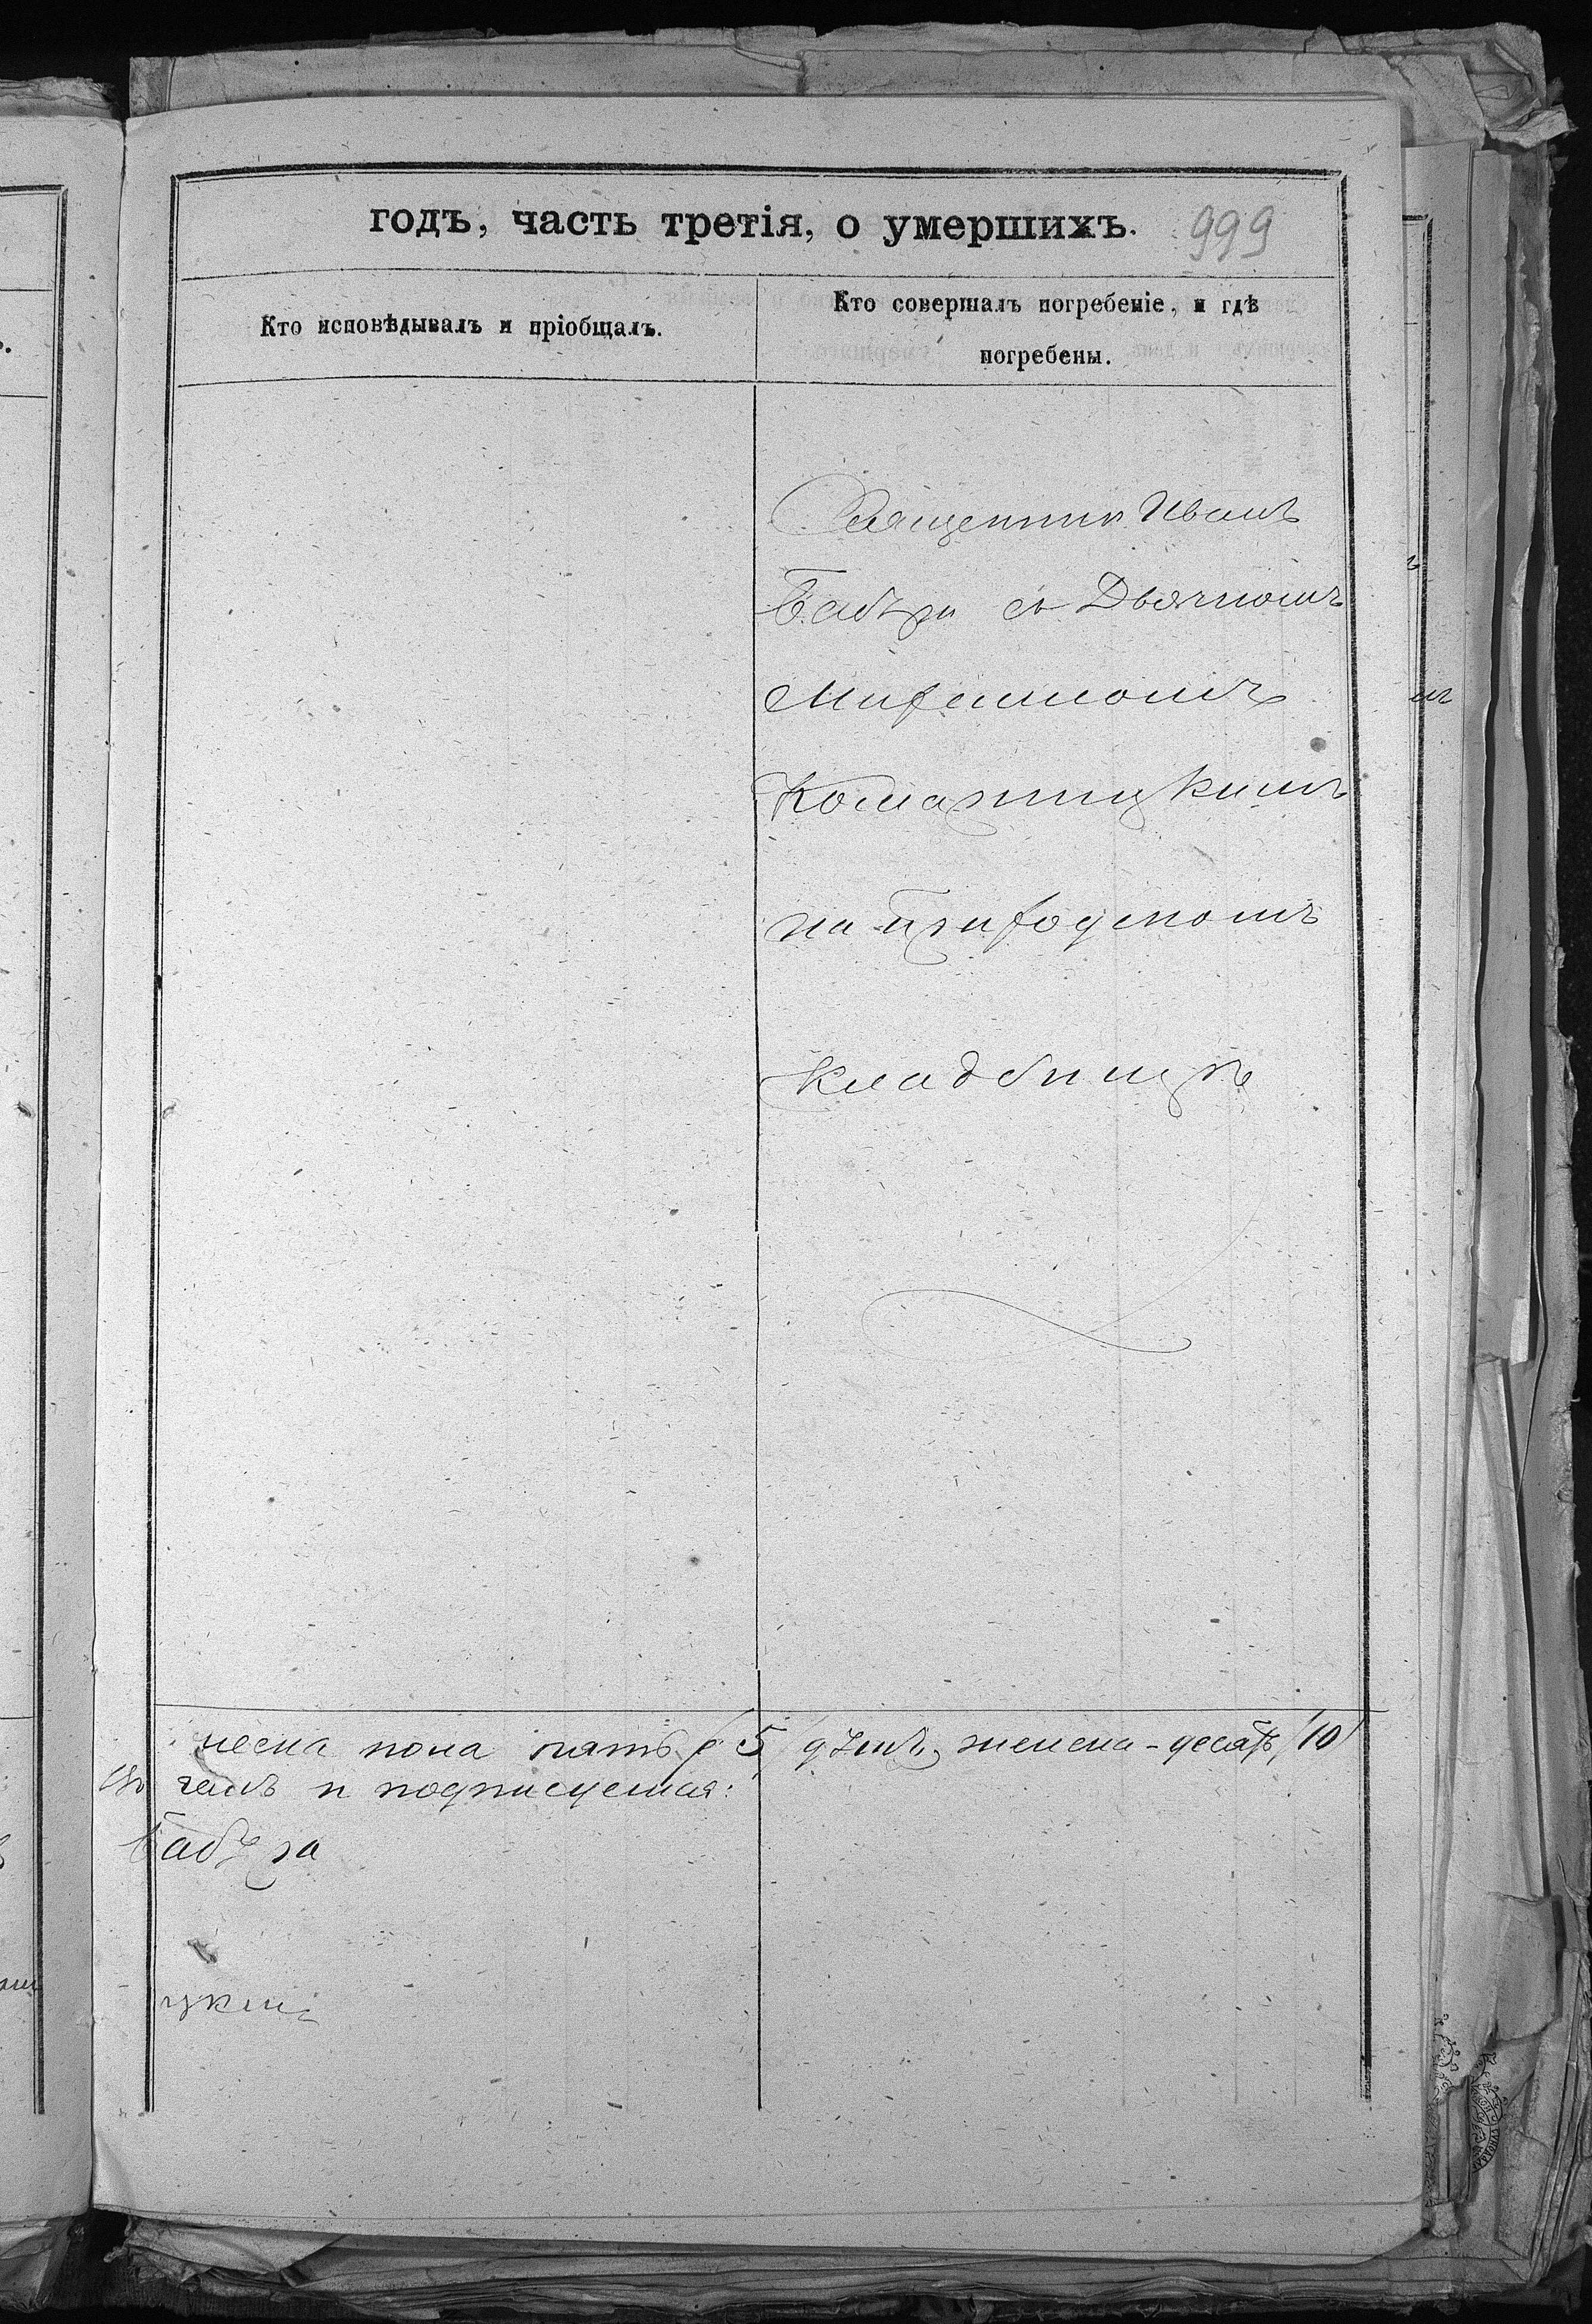 годъ, часть третія, о умершихъ. 999
Кто исповѣдывалъ и пріобщалъ.
Кто совершалъ погребеніе, и гдѣ
погребены.
Священникъ Иванъ
Бабѣра съ Дьячкомъ
Михаиломъ
Комарницкимъ
на приходскомъ
кладбищѣ
ческа пола пять (5) душъ, женска - десять (10)
чемъ и подписуемся:
Бабѣра
цкій